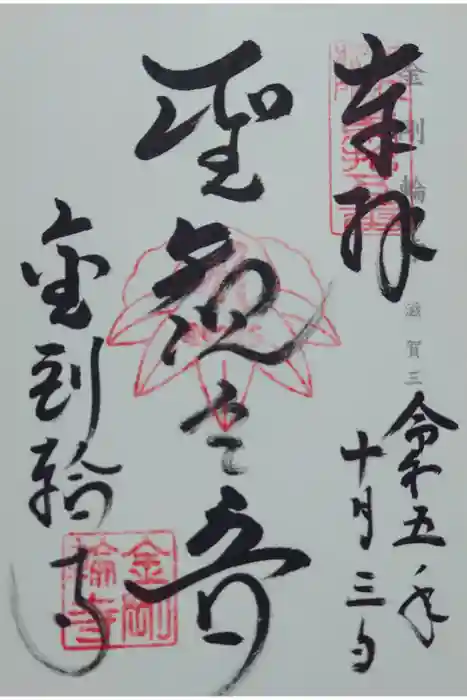 奉拝
金剛輪
滋賀三
令和五年
十月三日
聖観世音
金剛輪寺
金剛
輪寺